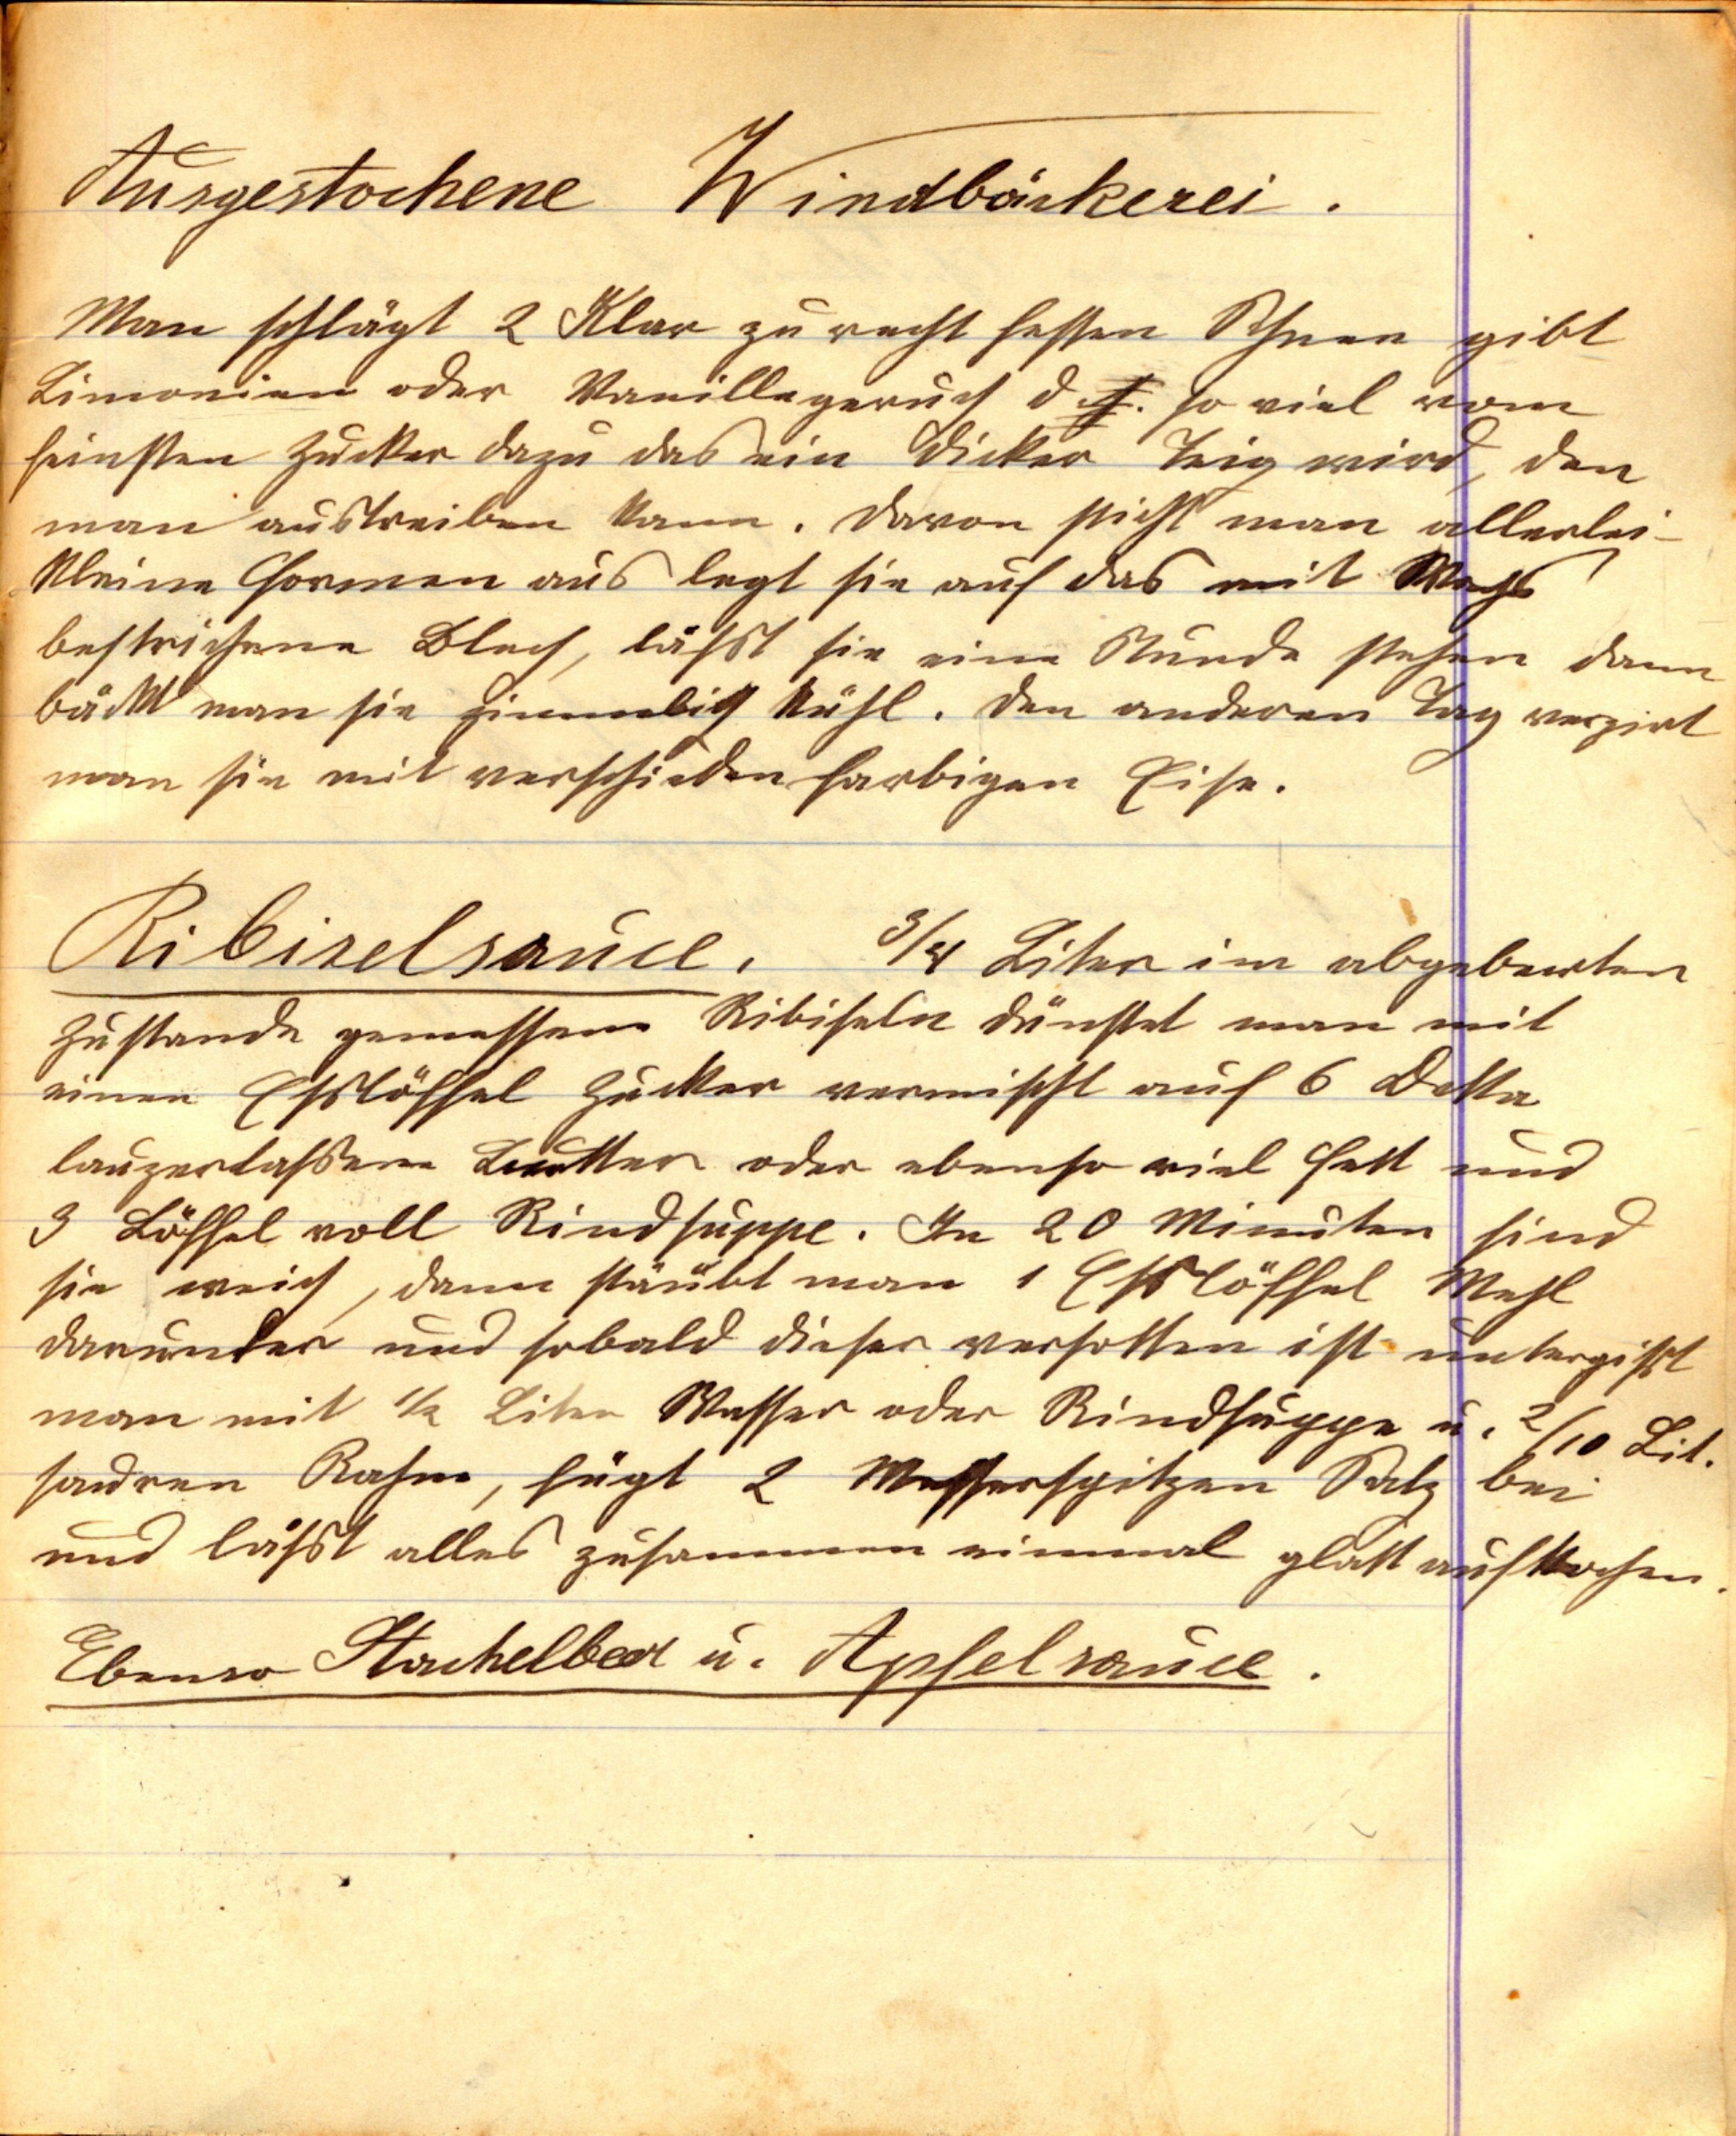 Ausgestochene Windbäckerei.
Man schlägt 2 Klar zu recht festen Schnee gibt
Limonien oder Vanillegeruch d. so viel vom
feinsten Zucker dazu das ein dicker Teig wird, den
man austreiben kann. Davon sticht man allerlei
kleine Formen aus legt sie auf das mit Wachs
bestrichene Blech, läßt sie eine Stunde stehen dann
bäckt man sie ziemlich kühl. Den anderen Tag verzirt
man sie mit verschieden farbigen Eise.
Ribiselsauce. 3/4 Liter im abgebeerten
Zustande gemessene Ribiseln dünstet man mit
einen Eßlöffel Zucker vermischt auf 6 Deka
zerlassene Butter oder ebenso viel Fett und
3 Löffel voll Rindsuppe. In 20 Minuten sind
sie weich, dann stäubt man 1 Eßlöffel Mehl
darunter und sobald dieser versotten ist untergißt
man mit 1/2 Liter Wasser oder Rindsuppe u. 2/10 Lit.
sauren Rahm, fügt 2 Messerspitzen Salz bei
und läßt alles zusammen einmal glatt aufkochen.
Ebenso Stachelbeer u. Apfelsauce.